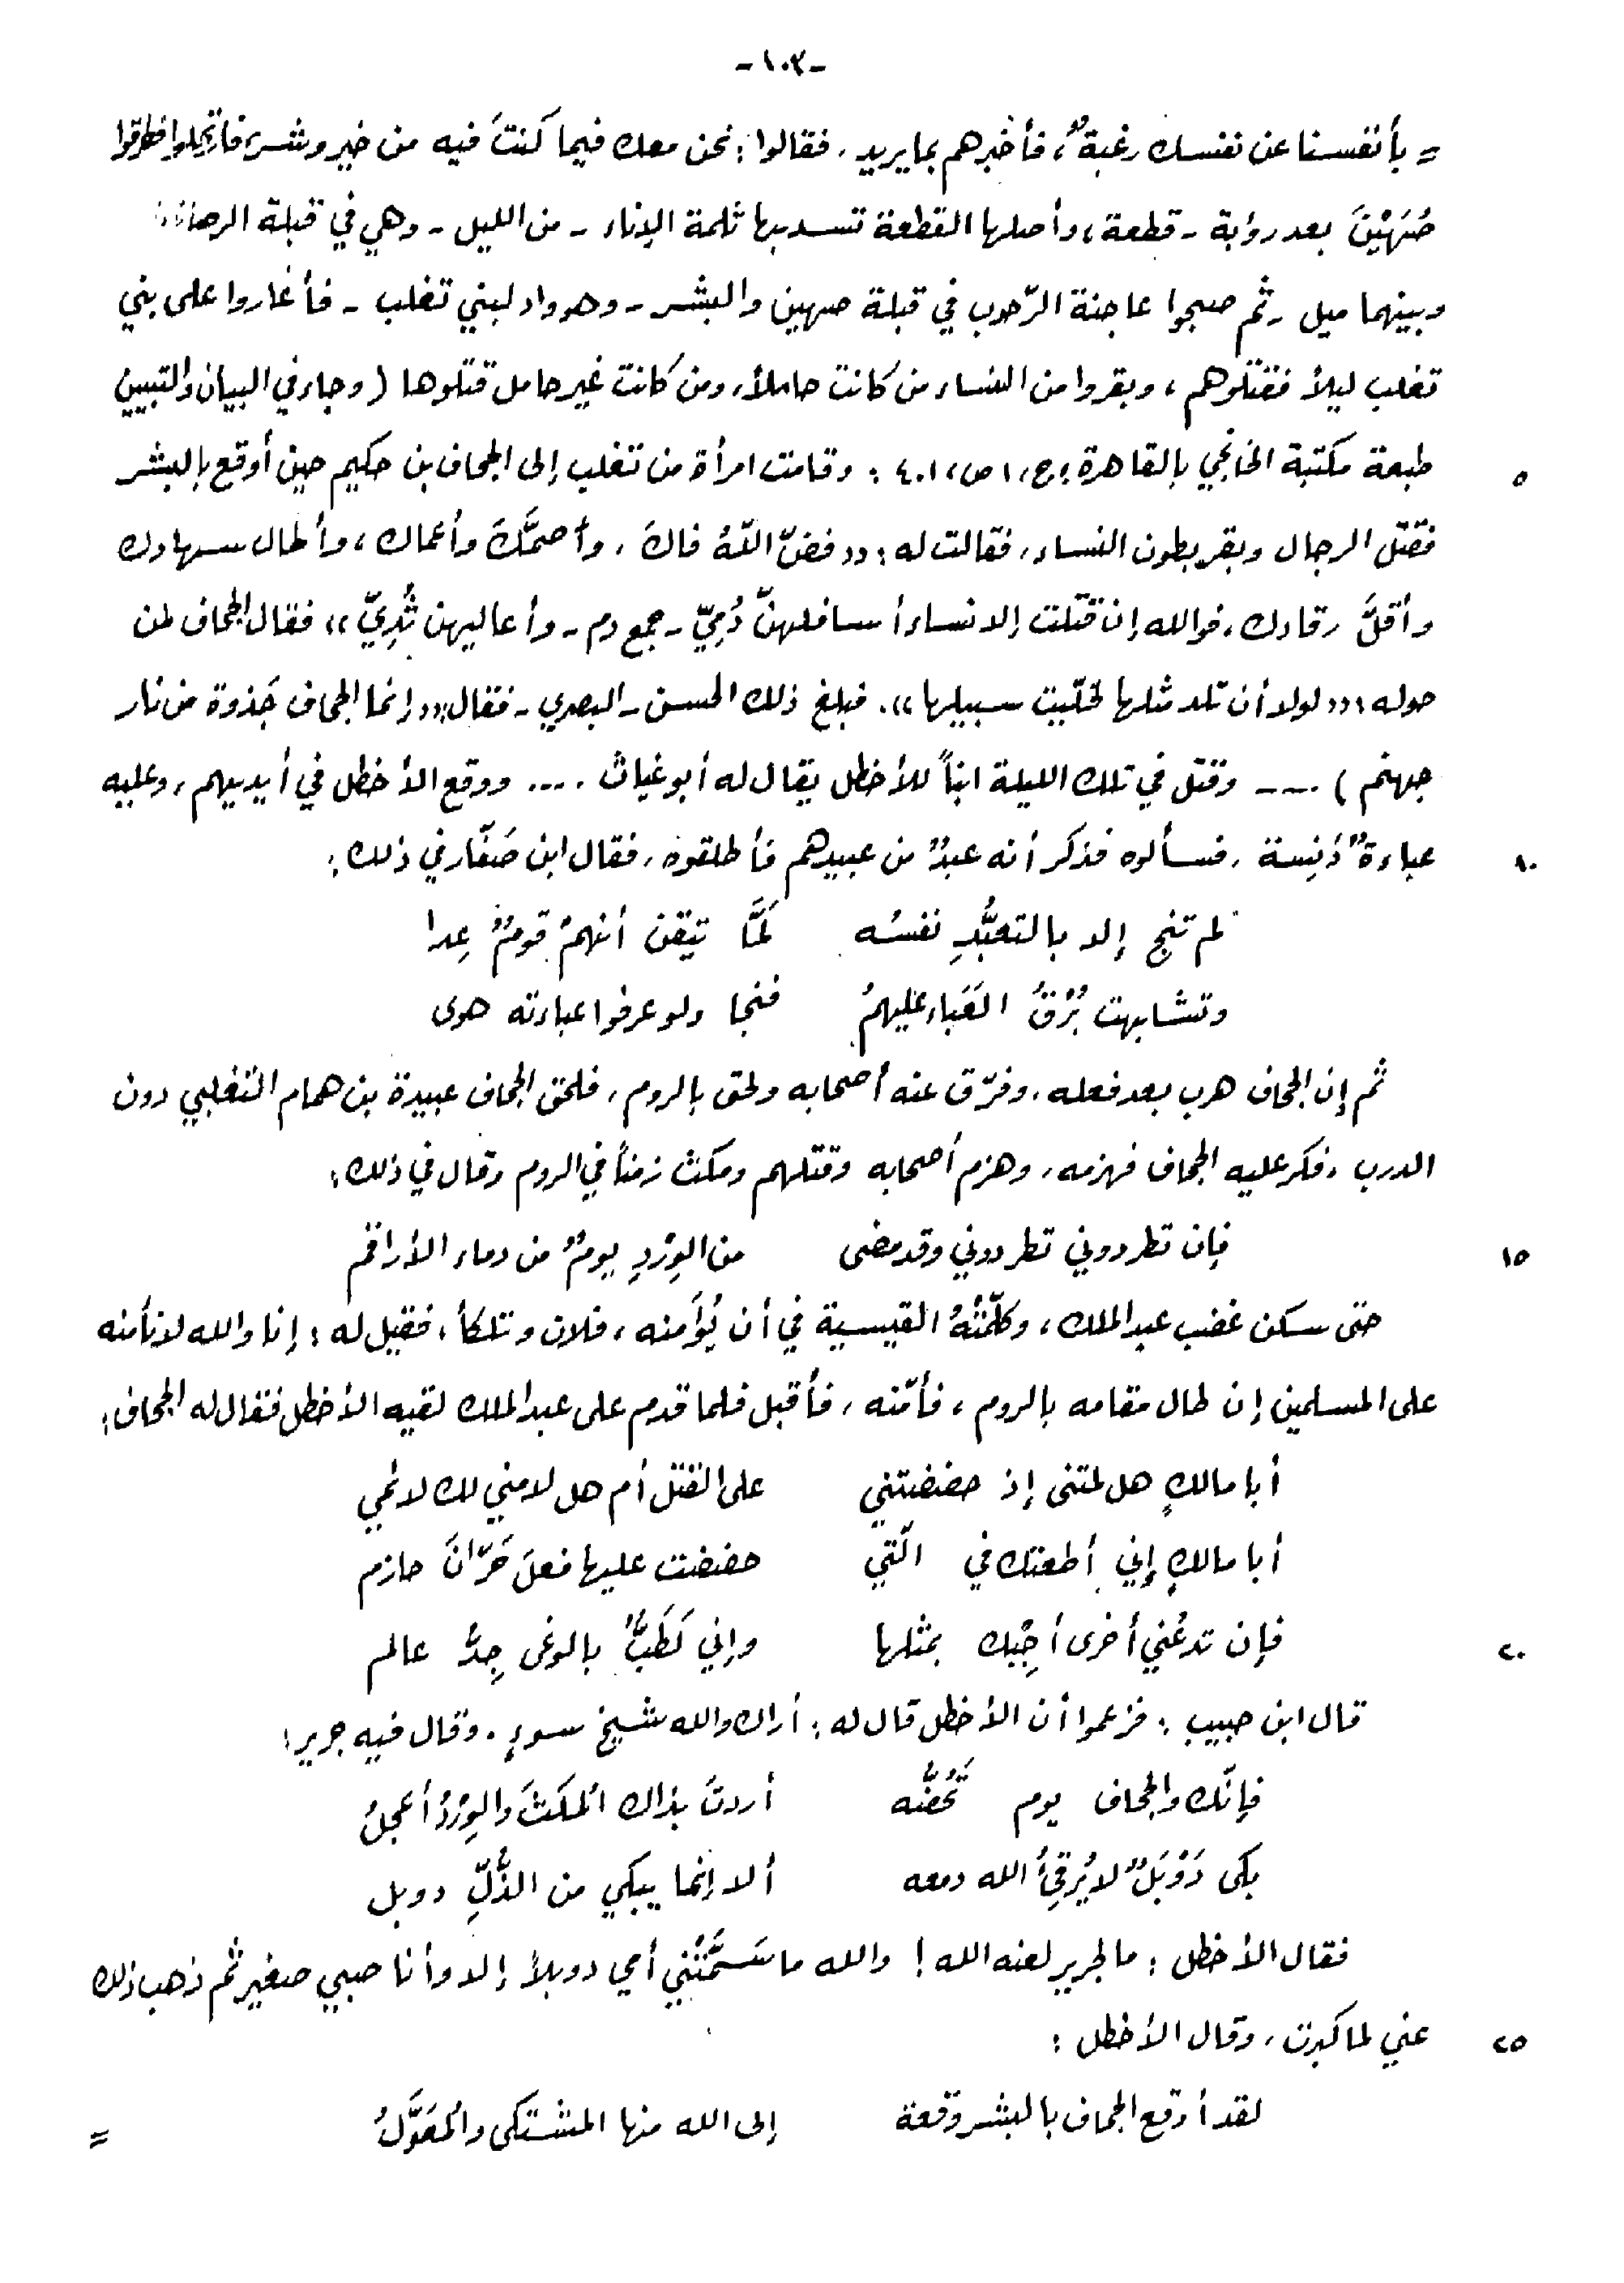 -١٠٣-
= بأنفسنا عن نفسك رغبةٌ، فأخبرهم بما يريد، فقالوا: نحن معك فيما كنتَ فيه من خير وشر، فارتحلوا فطرقوا
صُهَيْنَ بعد رؤبة - قطعة، وأصلها القطعة تسد بها ثلمة الإناء - من الليل - وهي في قبلة الرصافة
وبينهما ميل - ثم صبحوا عاجنة الرّحوب في قبلة صهين والبشر - وهو واد لبني تغلب - فأغاروا على بني
تغلب ليلاً فقتلوهم، وبقروا من النساء من كانت حاملاً، ومن كانت غير حامل قتلوها (وجاء في البيان والتبيين
٥ طبعة مكتبة الخانجي بالقاهرة: ج، ١ ص، ٤٠١: وقامت امرأة من تغلب إلى الجحاف بن حكيم حين أوقع بالبشر
فقتل الرجال وبقر بطون النساء، فقالت له: ((فضّ اللهُ فاكَ، وأصمَّكَ وأعماك، وأطال سهادك
وأقلَّ رقادك، فوالله إن قتلت إلا نساء أسافلهنّ دُمِيّ - جمع دم - وأعاليهن ثُدِيّ)) فقال الجحاف لمن
حوله: ((لولا أن تلد مثلها لخلّيت سبيلها)). فبلغ ذلك الحسن - البصري - فقال: ((إنما الجحاف جَذوة من نار
جهنم) .... وقتل في تلك الليلة ابناً للأخطل يقال له أبو غياث .... ووقع الأخطل في أيديهم، وعليه
١٠ عباءةٌ دَنِسة، فسألوه فذكر أنه عبدٌ من عبيدهم فأطلقوه، فقال ابن صَفّار في ذلك:
لم تنج إلا بالتعبُّدِ نفسُه لَمَّا تيقن أنهمْ قومٌ عِدا
وتشابهت بُرْقُ العَبَاء عليهمُ فنجا ولو عرفوا عباءته هوى
ثم إن الجحاف هرب بعد فعله، وفرّق عنه أصحابه ولحق بالروم، فلحق الجحاف عبيدة بن همام التغلبي دون
الدرب، فكر عليه الجحاف فهزمه، وهزم أصحابه وقتلهم ومكث زمناً في الروم وقال في ذلك:
١٥ فإن تطردوني تطردوني وقد مضى من الوِرْدِ يومٌ من دماء الأراقم
حتى سكن غضب عبد الملك، وكلّمَتْهُ القيسية في أن يُؤَمنه، فلان وتلكأ، فقيل له: إنا والله لا نأمنه
على المسلمين إن طال مقامه بالروم، فأمّنه، فأقبل فلما قدم على عبد الملك لقيه الأخطل فقال له الجحاف:
أبا مالكٍ هل لمتني إذ حضضتني على القتل أم هل لامني لك لائمي
أبا مالكٍ إني أطعتك في الّتي حضضت عليها فعلَ حَرّانَ حازم
٢٠ فإن تدعُني أخرى أجِبْك بمثلها وإني لَطَبٌّ بالوغى جِدُّ عالم
قال ابن حبيب: فزعموا أن الأخطل قال له: أراك والله شيخ سوءٍ. وقال فيه جرير:
فإنّك والجحاف يوم تَحُضُّه أردتَ بذاك المكثَ والوِرْدُ أعجلُ
بكى دَوْبَلٌ لا يُرْقِئُ الله دمعه ألا إنما يبكي من الذُّلِّ دوبل
فقال الأخطل: ما لجرير لعنه الله! والله ما سَمَّتْني أمي دوبلاً إلا وأنا صبي صغير ثم ذهب ذلك
٢٥ عني لما كبرت، وقال الأخطل:
لقد أوقع الجحاف بالبشر وقعة إلى الله منها المشتكى والمُعَوَّلُ =